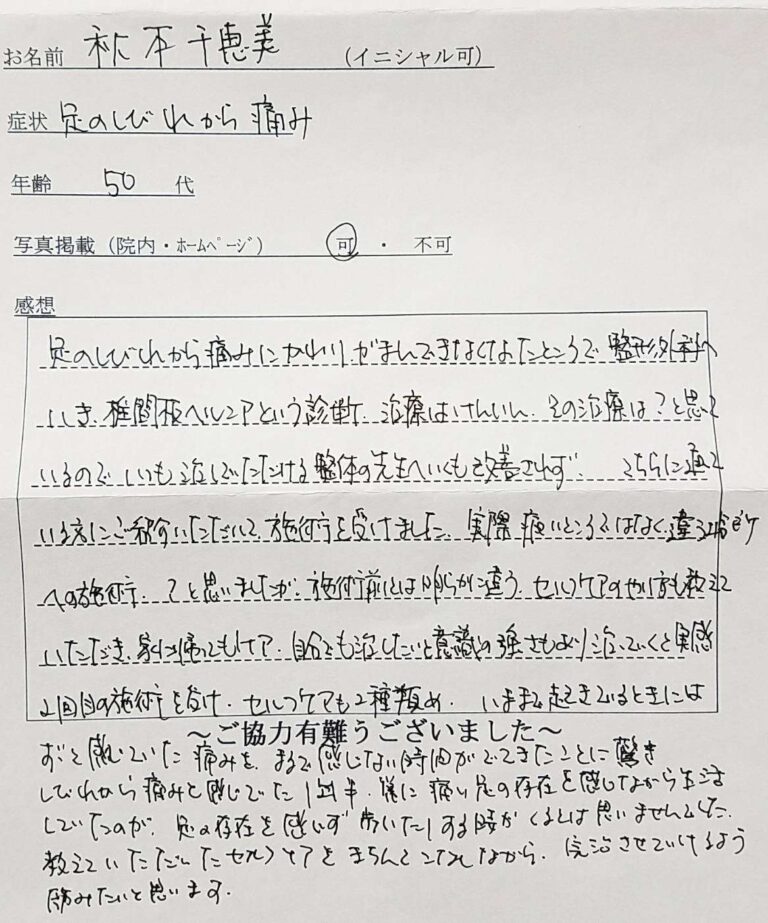 お名前 秋本千恵美 (イニシャル可)
症状 足のしびれから痛み
年齢 50 代
写真掲載（院内・ホームページ） 可 ・ 不可
感想
足のしびれから痛みにかわり、がまんできなくなったところで整形外科へ
いき、椎間板ヘルニアという診断。治療はけんいん。その治療は？と思って
いるので、いつも治していただける整体の先生へいくも改善されず、 こちらに通って
いる方にご紹介いただいて、施術を受けました。実際痛いところではなく、違う場所
への施術。？と思いましたが、施術前とは明らかに違う。セルフケアのやり方も教えて
いただき、家に帰ってもケア。自分でも治したいと意識の強さもあり治っていくと実感
2回目の施術を受け、セルフケアも2種類め。 いままで起きているときには
～ご協力有難うございました～
ずっと感じていた痛みを、まるで感じない時間がでてきたことに驚き
しびれから痛みと感じてた1週半、常に痛い足の存在を感じながら生活
していたのが、足の存在を感じず歩いたりする時がくるとは思いませんでした。
教えていただいたセルフケアをきちんとこなしながら、完治させていけるよう
励みたいと思います。